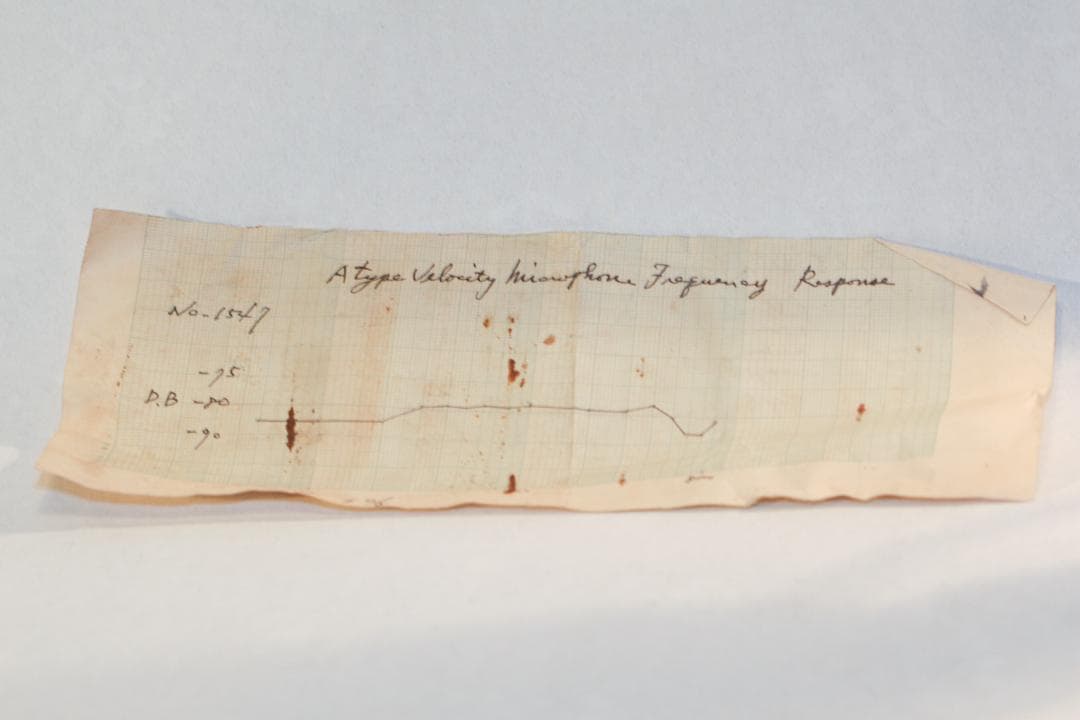 A type Velocity Microphone Frequency Response
No. 1547
-75
D.B -80
-90